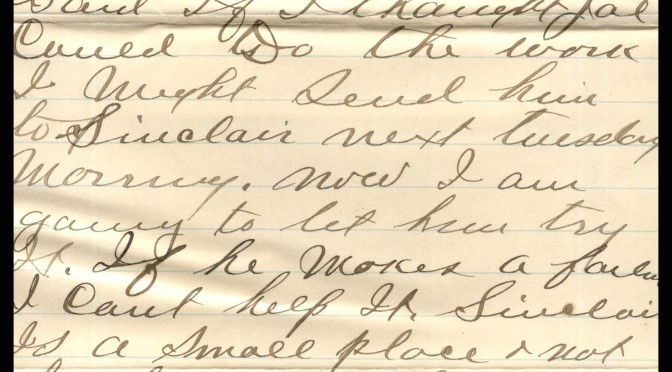 Said If I thought Jal
Could Do the work
I Might Send him
to Sinclair next tuesday
Morning. now I am
going to let him try
It. If he Makes a failu
I Cant help It. Sinclair
Is a Small place & not